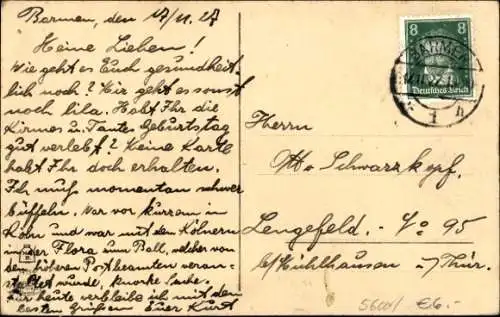 Barmen, den 17/11.27
Meine Lieben!
Wie geht es Euch gesundheit-
lich noch? Mir geht es sonst
noch lila. Habt Ihr die
Kirmes u. Tantes Geburtstag
gut verlebt? Meine Karte
habt Ihr doch erhalten.
Ich muß momentan schwer
büffeln. War vor kurzem in
Köln und war mit den Kölnern
in der Flora zum Ball, welcher von
den höheren Postbeamten veran-
staltet wurde, knorke Sache.
Für heute verbleibe ich mit den
besten Grüßen Euer Kurt
8 8
Deutsches Reich
BARMEN
1 h
Herrn
Otto Schwarzkopf.
Lengefeld. No 95
b/Mühlhausen i/Thür.
5600/ €6.-